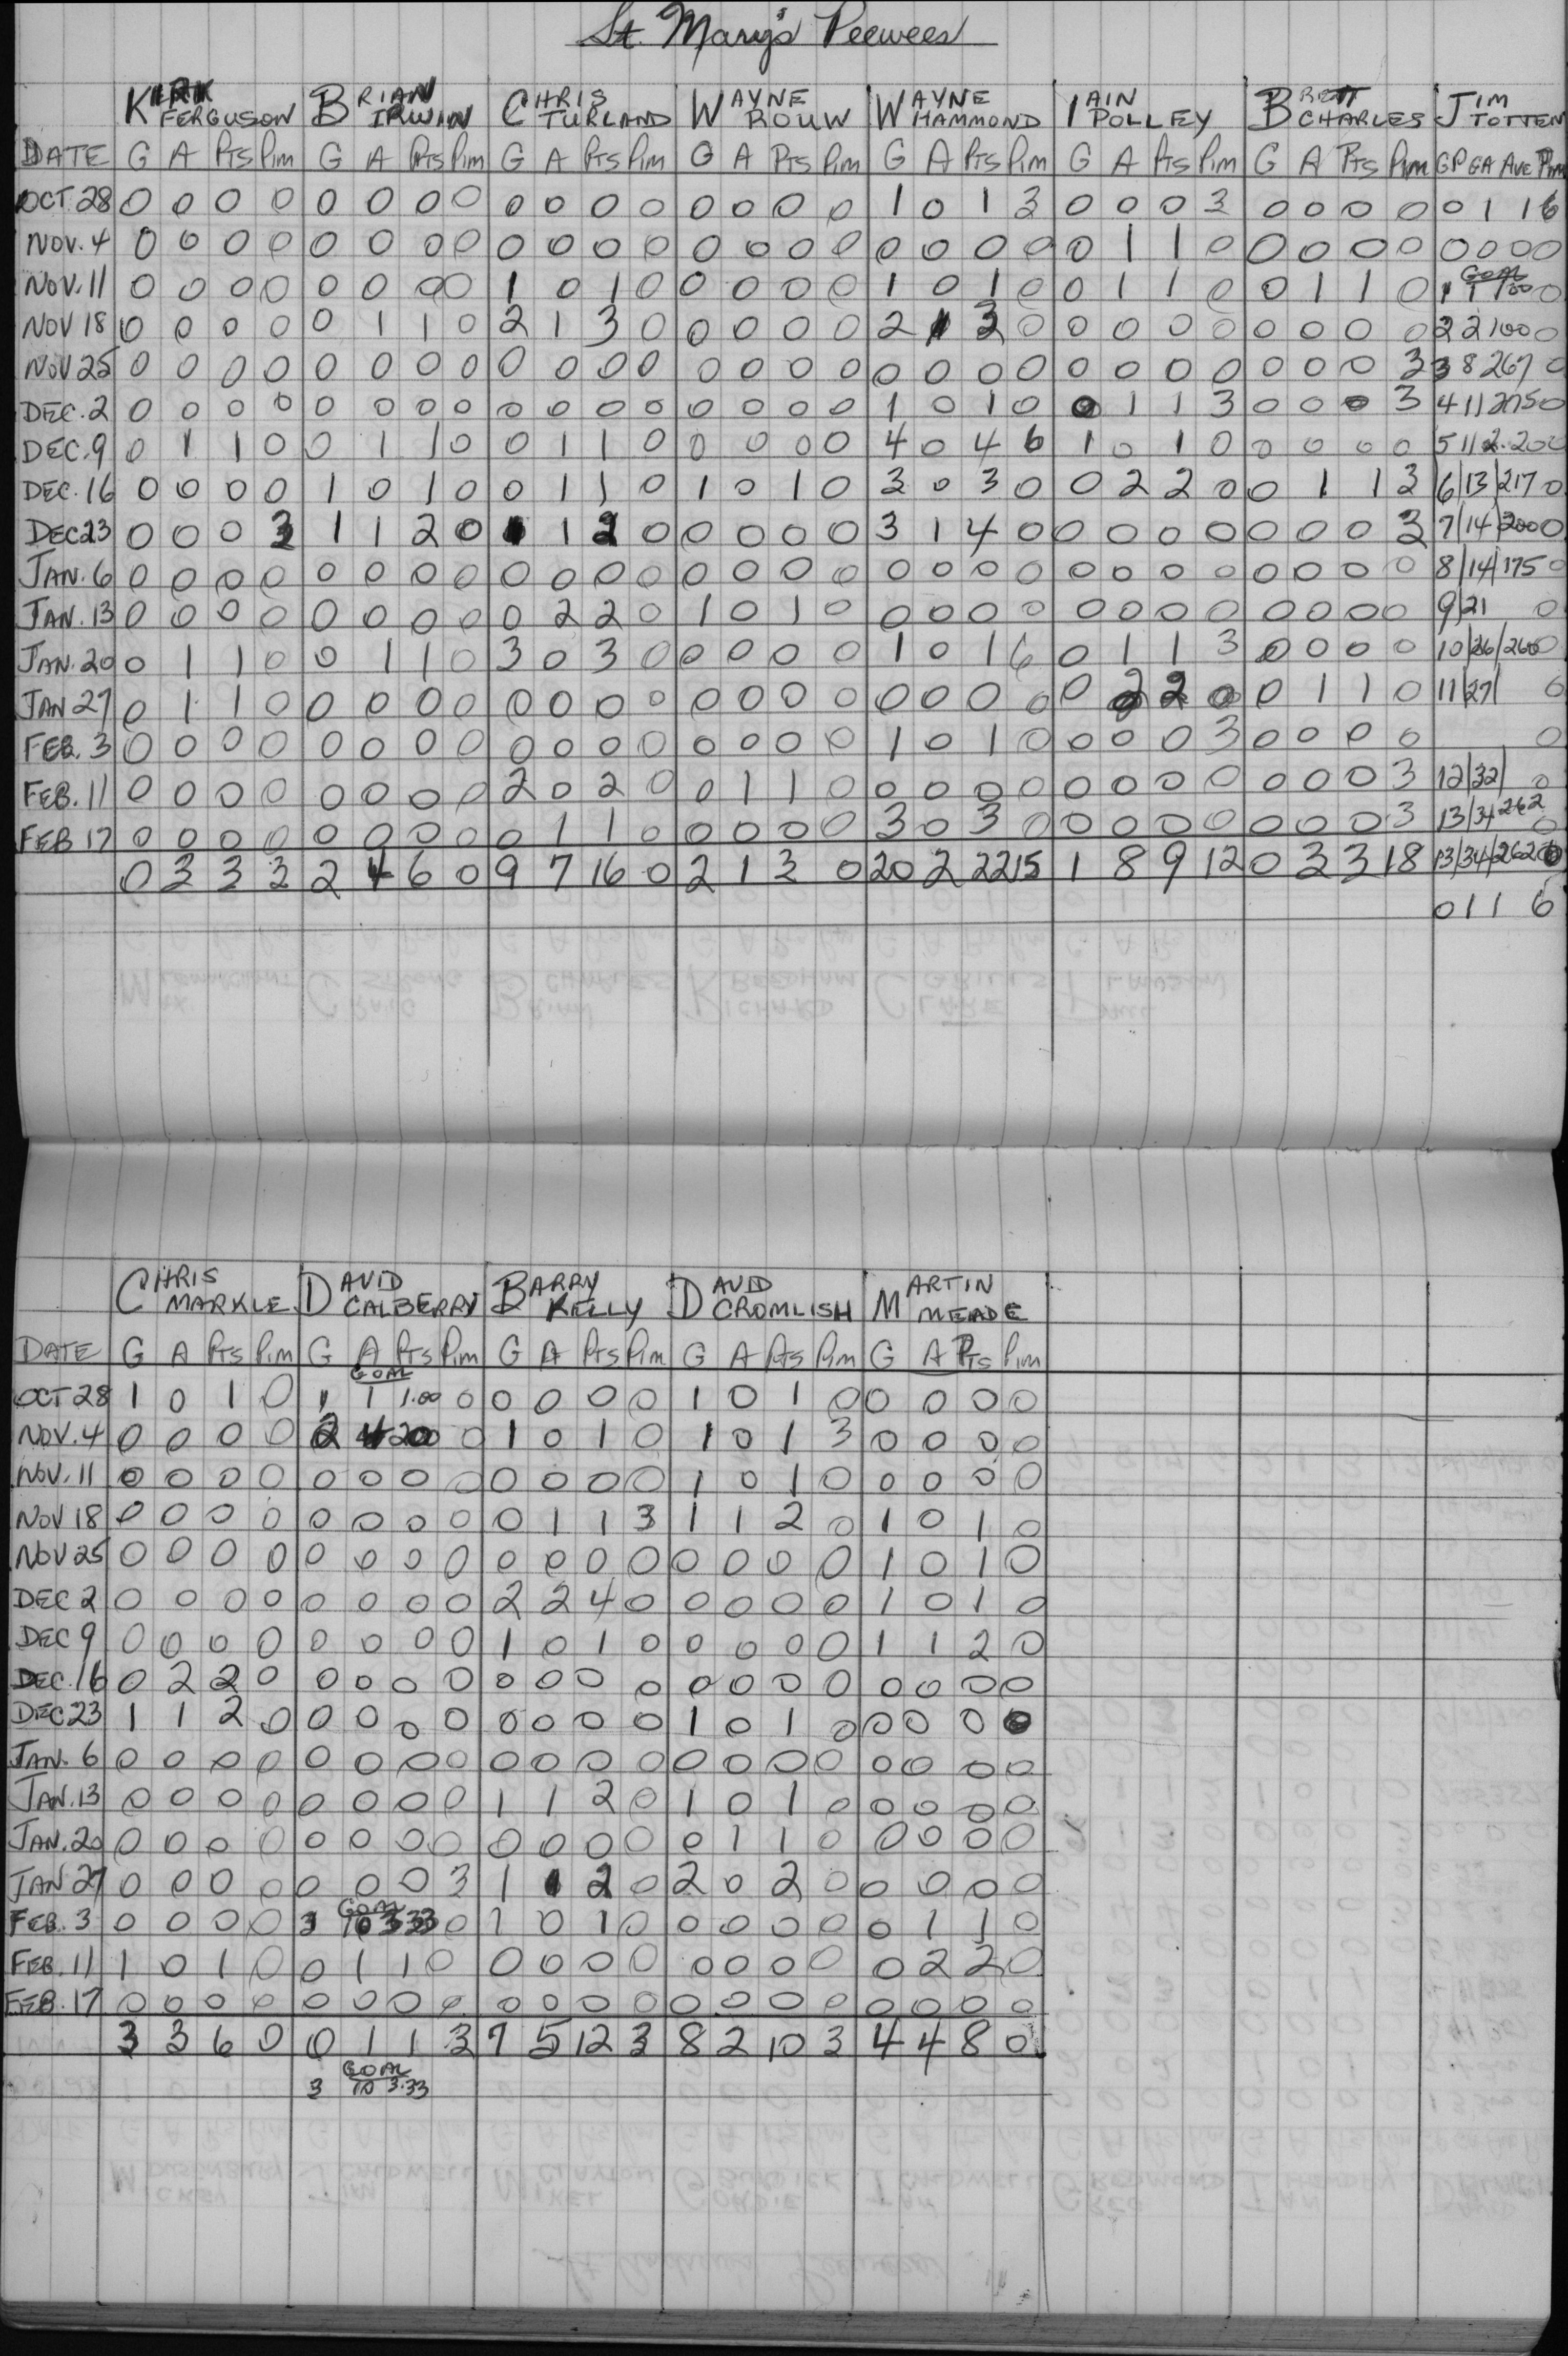 St. Mary's Peewees
KIRK FERGUSON BRIAN IRWIN CHRIS TURLAND WAYNE ROUW WAYNE HAMMOND IAIN POLLEY BRETT CHARLES JIM TOTTEN
DATE G A Pts Pim G A Pts Pim G A Pts Pim G A Pts Pim G A Pts Pim G A Pts Pim G A Pts Pim GP GA Ave Pim
OCT. 28 0 0 0 0 0 0 0 0 0 0 0 0 0 0 0 0 1 0 1 3 0 0 0 3 0 0 0 0 0 1 1 6
NOV. 4 0 0 0 0 0 0 0 0 0 0 0 0 0 0 0 0 0 0 0 0 0 1 1 0 0 0 0 0 0 0 0 0
NOV. 11 0 0 0 0 0 0 0 0 1 0 1 0 0 0 0 0 1 0 1 0 0 1 1 0 0 1 1 0 1 GOAL 1 100 0
NOV 18 0 0 0 0 0 1 1 0 2 1 3 0 0 0 0 0 2 1 3 0 0 0 0 0 0 0 0 0 2 2 100 0
NOV 25 0 0 0 0 0 0 0 0 0 0 0 0 0 0 0 0 0 0 0 0 0 0 0 0 0 0 0 3 3 8 267 0
DEC. 2 0 0 0 0 0 0 0 0 0 0 0 0 0 0 0 0 1 0 1 0 0 1 1 3 0 0 0 3 4 11 275 0
DEC. 9 0 1 1 0 0 1 1 0 0 1 1 0 0 0 0 0 4 0 4 6 1 0 1 0 0 0 0 0 5 11 2.20 0
DEC. 16 0 0 0 0 1 0 1 0 0 1 1 0 1 0 1 0 3 0 3 0 0 2 2 0 0 1 1 3 6/13/217 0
DEC 23 0 0 0 3 1 1 2 0 1 1 2 0 0 0 0 0 3 1 4 0 0 0 0 0 0 0 0 3 7/14/200 0
JAN. 6 0 0 0 0 0 0 0 0 0 0 0 0 0 0 0 0 0 0 0 0 0 0 0 0 0 0 0 0 8/14/175 0
JAN. 13 0 0 0 0 0 0 0 0 0 2 2 0 1 0 1 0 0 0 0 0 0 0 0 0 0 0 0 0 9/21 0
JAN. 20 0 1 1 0 0 1 1 0 3 0 3 0 0 0 0 0 1 0 1 6 0 1 1 3 0 0 0 0 10/26/260 0
JAN 27 0 1 1 0 0 0 0 0 0 0 0 0 0 0 0 0 0 0 0 0 0 2 2 0 0 1 1 0 11/27/ 0
FEB. 3 0 0 0 0 0 0 0 0 0 0 0 0 0 0 0 0 1 0 1 0 0 0 0 3 0 0 0 0 0
FEB. 11 0 0 0 0 0 0 0 0 2 0 2 0 0 1 1 0 0 0 0 0 0 0 0 0 0 0 0 3 12/32/ 0
FEB 17 0 0 0 0 0 0 0 0 0 1 1 0 0 0 0 0 3 0 3 0 0 0 0 0 0 0 0 3 13/34 262 0
0 3 3 3 2 4 6 0 9 7 16 0 2 1 3 0 20 2 22 15 1 8 9 12 0 3 3 18 13/34/262 0
0 1 1 6
CHRIS MARKLE DAVID CALBERRY BARRY KELLY DAVID CROMLISH MARTIN MEADE
DATE G A Pts Pim G A Pts Pim G A Pts Pim G A Pts Pim G A Pts Pim
OCT 28 1 0 1 0 1 GOAL 1 1.00 0 0 0 0 0 1 0 1 0 0 0 0 0
NOV. 4 0 0 0 0 2 4 200 0 1 0 1 0 1 0 1 3 0 0 0 0
NOV. 11 0 0 0 0 0 0 0 0 0 0 0 0 1 0 1 0 0 0 0 0
NOV 18 0 0 0 0 0 0 0 0 0 1 1 3 1 1 2 0 1 0 1 0
NOV 25 0 0 0 0 0 0 0 0 0 0 0 0 0 0 0 0 1 0 1 0
DEC 2 0 0 0 0 0 0 0 0 2 2 4 0 0 0 0 0 1 0 1 0
DEC 9 0 0 0 0 0 0 0 0 1 0 1 0 0 0 0 0 1 1 2 0
DEC. 16 0 2 2 0 0 0 0 0 0 0 0 0 0 0 0 0 0 0 0 0
DEC 23 1 1 2 0 0 0 0 0 0 0 0 0 1 0 1 0 0 0 0 0
JAN. 6 0 0 0 0 0 0 0 0 0 0 0 0 0 0 0 0 0 0 0 0
JAN. 13 0 0 0 0 0 0 0 0 1 1 2 0 1 0 1 0 0 0 0 0
JAN. 20 0 0 0 0 0 0 0 0 0 0 0 0 0 1 1 0 0 0 0 0
JAN 27 0 0 0 0 0 0 0 3 1 1 2 0 2 0 2 0 0 0 0 0
FEB. 3 0 0 0 0 3 GOAL 10 333 0 1 0 1 0 0 0 0 0 0 1 1 0
FEB. 11 1 0 1 0 0 1 1 0 0 0 0 0 0 0 0 0 0 2 2 0
FEB. 17 0 0 0 0 0 0 0 0 0 0 0 0 0 0 0 0 0 0 0 0
3 3 6 0 0 1 1 3 7 5 12 3 8 2 10 3 4 4 8 0
3 GOAL 10 3.33